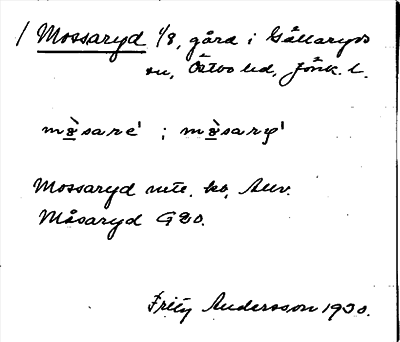 / Mossaryd 1/8, gård i Gällaryds
sn, Östbo hd, Jönk. l.
mɑ̀sare' ; mɑ̀sary'
Mossaryd mte. ko, Auv.
Måsaryd GEO.
Fritz Andersson 1930.